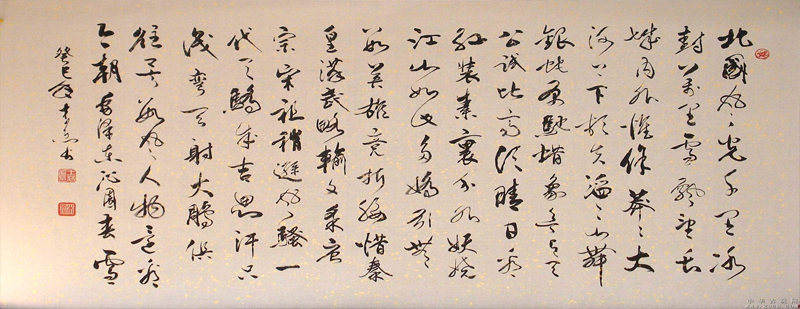 北國風光千里冰
封萬里雪飄望長
城內外惟餘莽莽大
河上下頓失滔滔山舞
銀蛇原馳蜡象欲与天
公試比高須晴日看
紅裝素裹分外妖嬈
江山如此多嬌引無
數英雄競折腰惜秦
皇漢武略輸文采唐
宗宋祖稍遜風騷一
代天驕成吉思汗只
識彎弓射大鵰俱
往矣數風流人物還看
今朝 毛澤東沁園春雪
癸巳 書